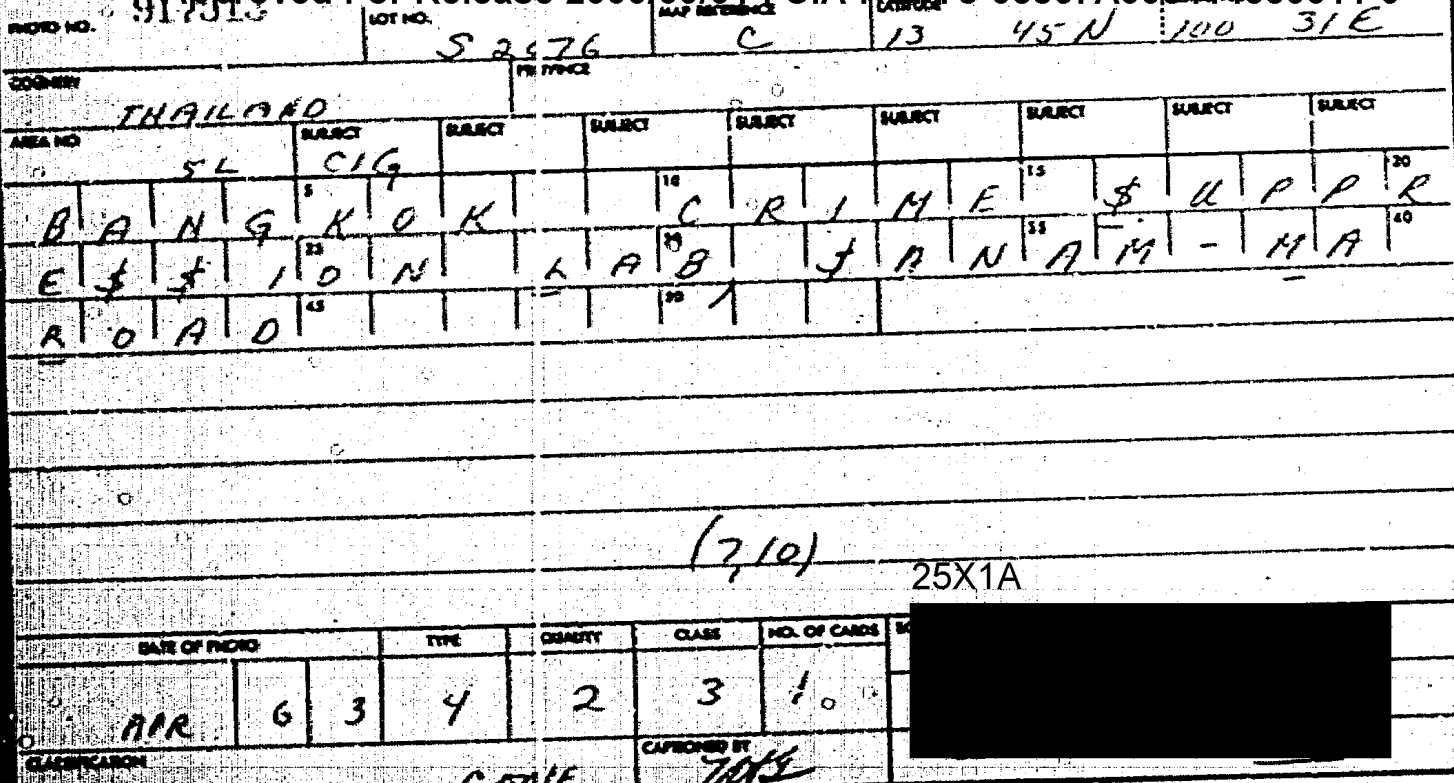 PHOTO NO. 917313 LOT NO. S 2676 MAP REFERENCE C LATITUDE 13 45 N 100 31 E
COUNTRY THAILAND PROVINCE
AREA NO 5L SUBJECT CIG SUBJECT SUBJECT SUBJECT SUBJECT SUBJECT SUBJECT SUBJECT
5 10 15 20
B A N G K O K C R I M E $ U P P R
25 30 35 40
E $ $ I O N L A B $ A N A M - M A
R O A D 45 50
(7,10)
25X1A
DATE OF PHOTO TYPE QUALITY CLASS NO. OF CARDS
APR 6 3 4 2 3 1
CLASSIFICATION CAPTIONED BY